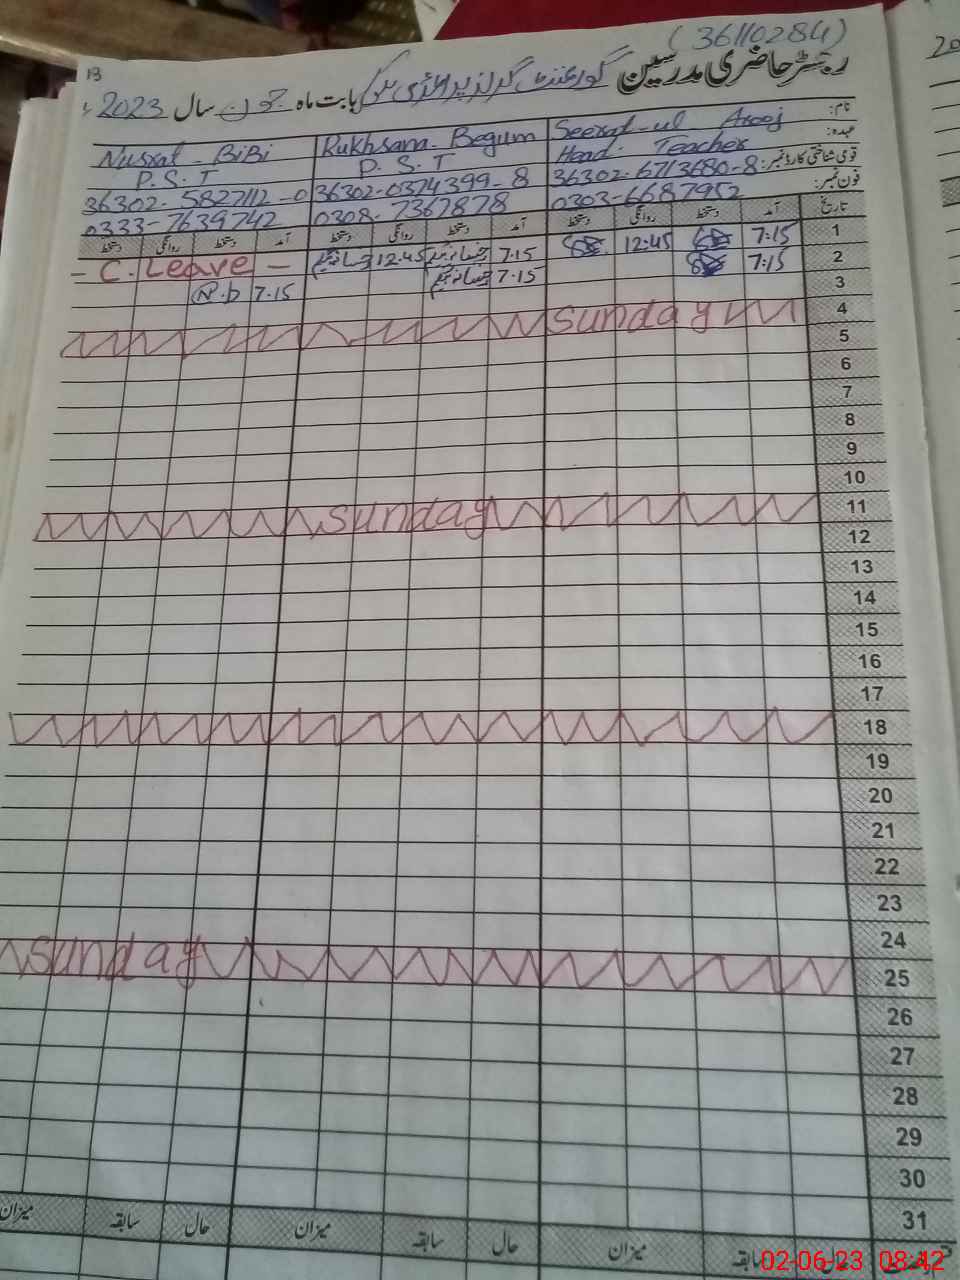 (36110284)
13
رجسٹر حاضری مدرسین گورنمنٹ گرلز پرائمری بابت ماہ جون سال 2023ء
نام:
Seerat-ul Arooj
Rukhsana Begum
Nusrat - BiBi
عہدہ:
Head. Teacher
P. S. T
P. S. T
قومی شناختی کارڈ نمبر:
36302-6713680-8
36302-0374399-8
36302-5827112-0
فون نمبر:
0303-6687952
0308-7367878
0333-7639742
تاریخ آمد دستخط روانگی دستخط آمد دستخط روانگی دستخط آمد دستخط روانگی دستخط
1 7:15 12:45 7.15 12.45 - C. Leave -
2 7:15 7.15 7.15 N.b
3
4 Sunday
5
6
7
8
9
10
11 Sunday
12
13
14
15
16
17
18
19
20
21
22
23
24
25 Sunday
26
27
28
29
30
31
حال سابقہ میزان حال سابقہ میزان حال سابقہ میزان
02-06-23 08:42
20